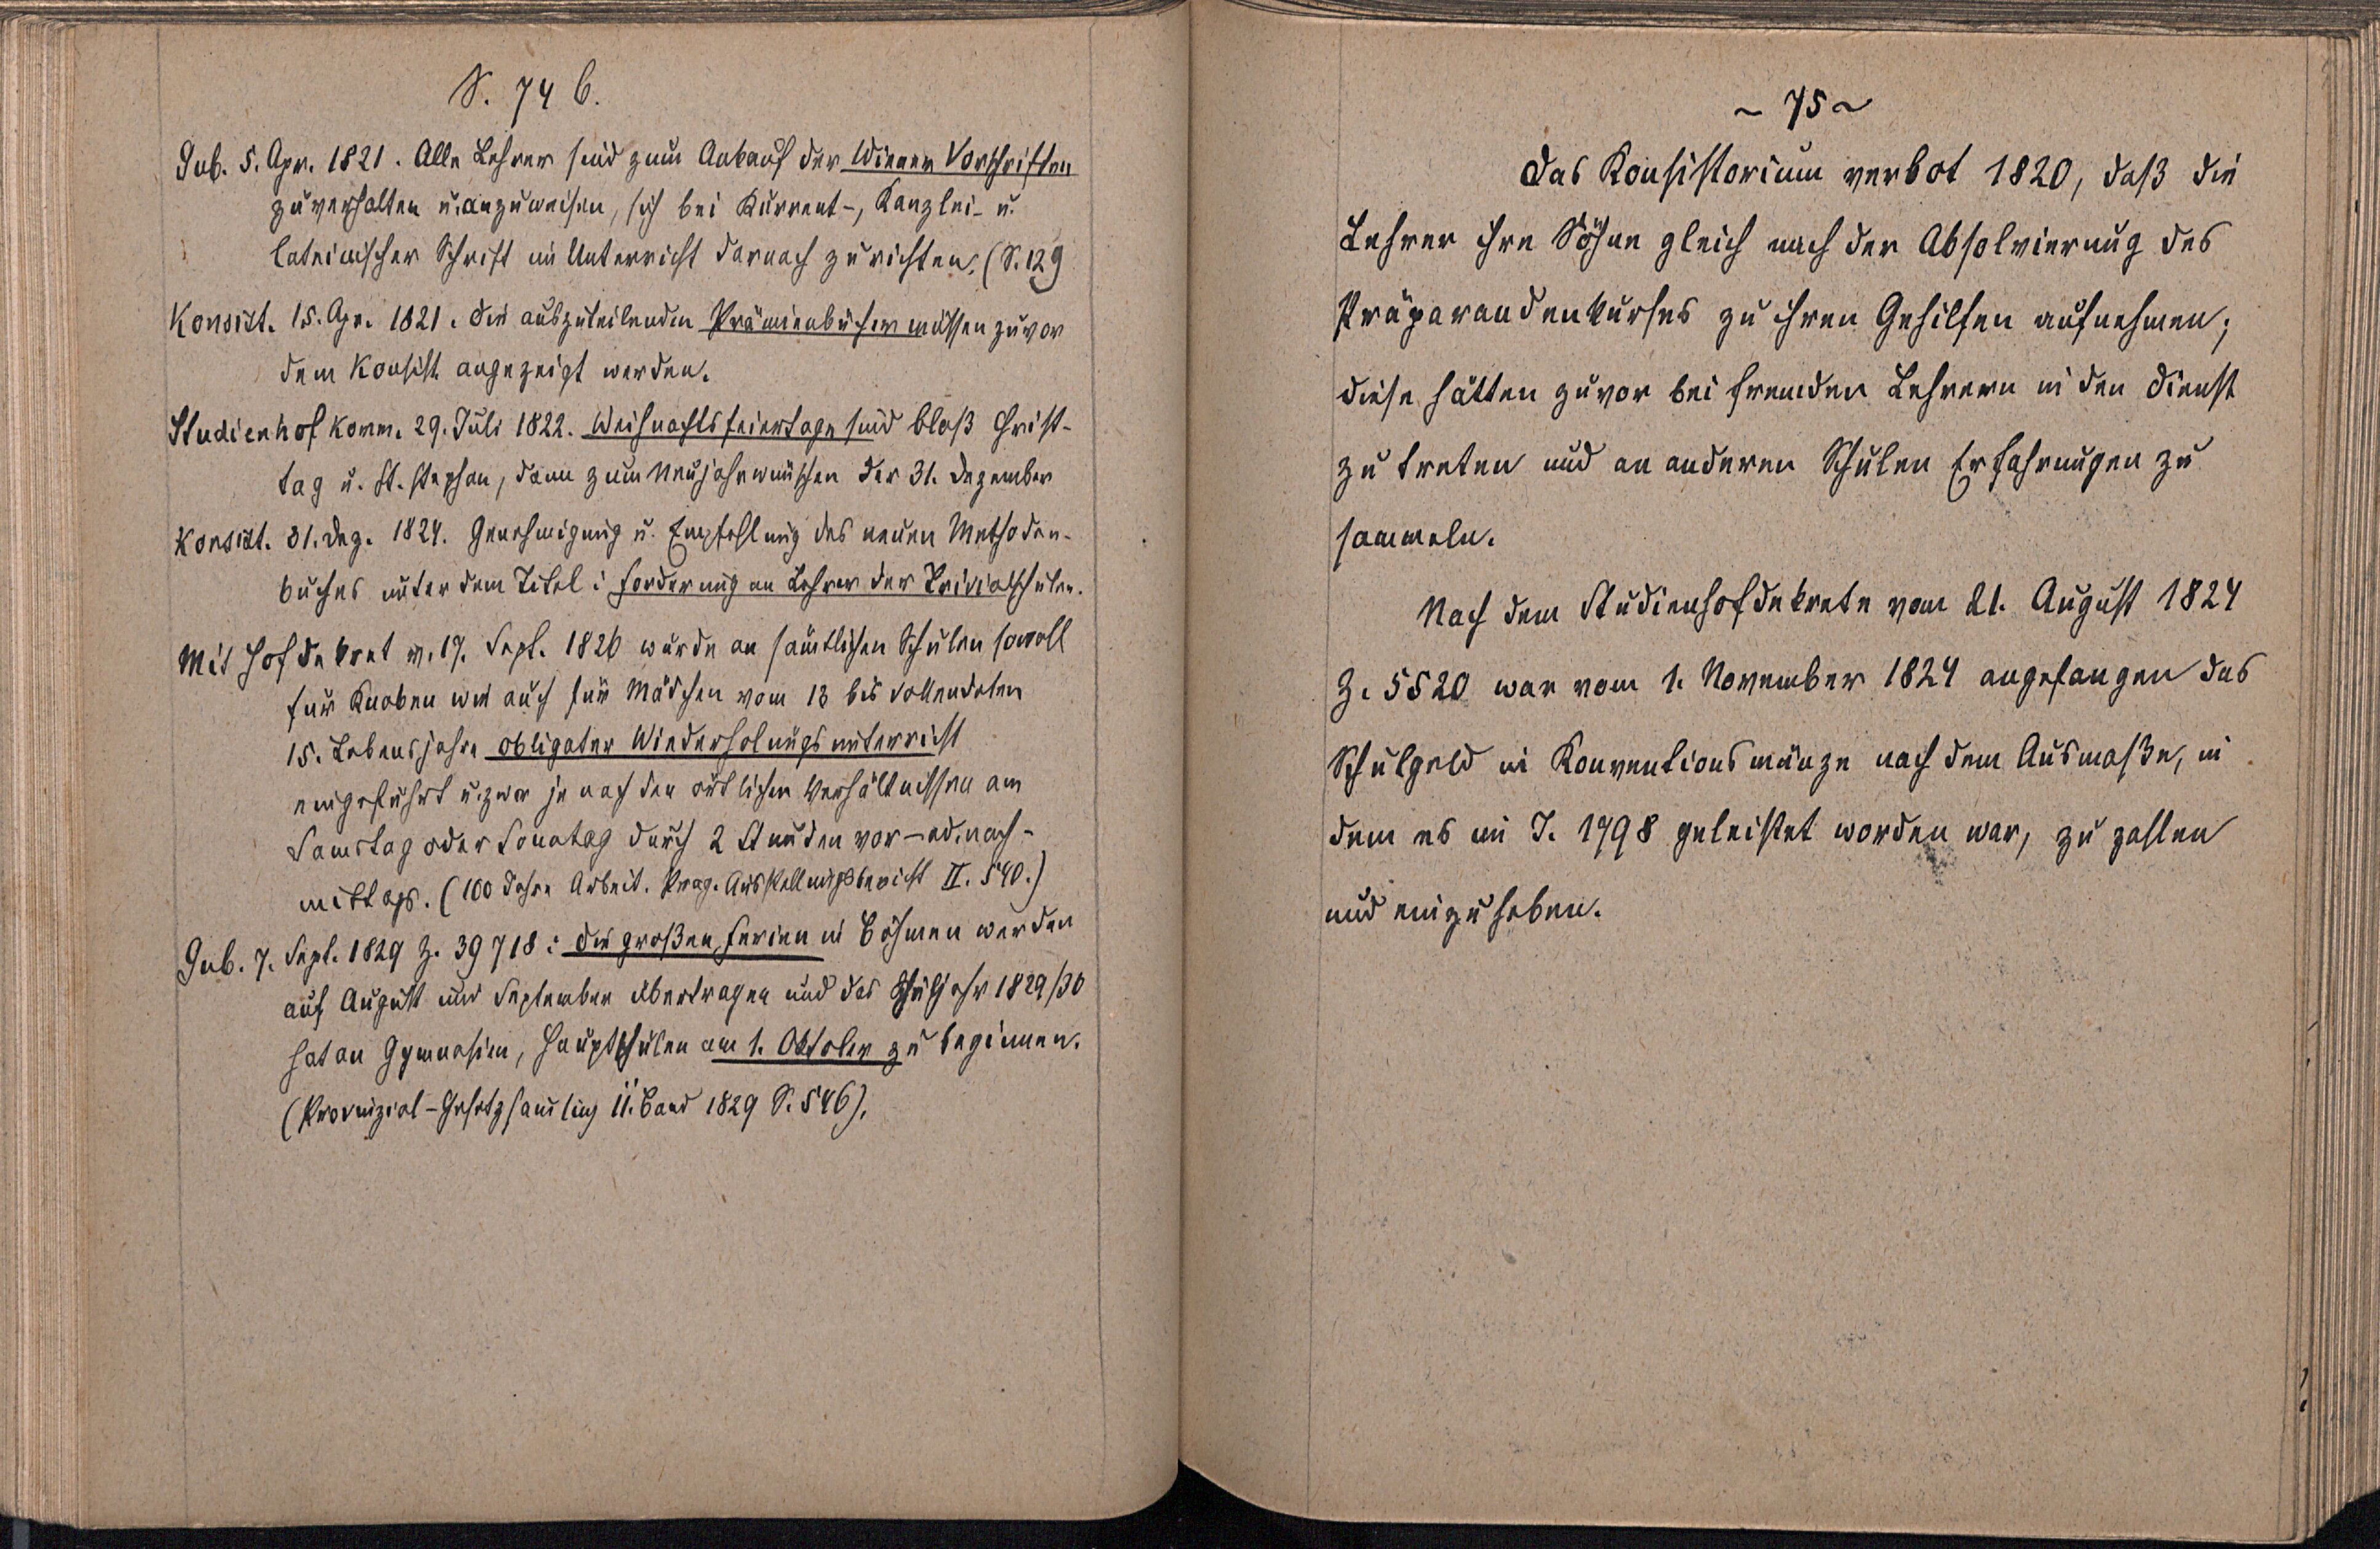 S. 74 b.
Gub. 5. Apr. 1821. Alle Lehrer sind zum Ankauf der Wiener Vorschriften
zu verhalten u. anzuweisen, sich bei Kurrent-, Kanzlei- u.
lateinischer Schrift im Unterricht darnach zu richten. (S. 129
Konsist. 15. Apr. 1821. Die auszuteilenden Prämienbücher müssen zuvor
dem Konsist. angezeigt werden.
Studienhofkomm. 29. Juli 1822. Weihnachtsfeiertage sind bloß Christ-
tag u. St. Stephan, dann zum Neujahrwünschen der 31. Dezember
Konsist. 31. Dez. 1824. Genehmigung u. Empfehlung des neuen Methoden-
buches unter dem Titel: Forderung an Lehrer der Trivialschulen.
Mit Hofdekret v. 17. Sept. 1826 wurde an sämtlichen Schulen sowoll
für Knaben wie auch für Mädchen vom 13 bis vollendeten
15. Lebensjahre obligater Wiederholungsunterricht
eingeführt u. zwar je nach den örtlichen Verhältnissen am
Samstag oder Sonntag durch 2 Stunden vor- od. nach-
mittags. (100 Jahre Arbeit. Prag. Ausstellungsbericht II. 540.)
Gub. 7. Sept. 1829 Z. 39718: Die großen Ferien in Böhmen werden
auf August und September übertragen und das Schuljahr 1829/30
hat an Gymnasien, Hauptschulen am 1. Oktober zu beginnen.
(Provinzial-Gesetzsamlung 11. Band 1829 S. 546).
~ 75 ~
Das Konsistorium verbot 1820, daß die
Lehrer ihre Söhne gleich nach der Absolvierung des
Präparandenkurses zu ihren Gehilfen aufnehmen;
diese hätten zuvor bei fremden Lehrern in den Dienst
zu treten und an anderen Schulen Erfahrungen zu
sammeln.
Nach dem Studienhofdekrete vom 21. August 1824
Z. 5520 war vom 1. November 1824 angefangen das
Schulgeld in Konventionsmünze nach dem Ausmaße, in
dem es im J. 1798 geleistet worden war, zu zahlen
und einzuheben.